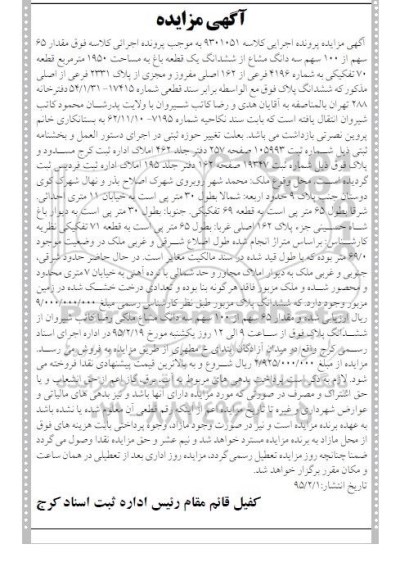 آگهی مزایده
آگهی مزایده پرونده اجرایی کلاسه ۹۳۰۱۰۵۱ به موجب پرونده اجرائی کلاسه فوق مقدار ۶۵
سهم از ۱۰۰ سهم سه دانگ مشاع از ششدانگ یک قطعه باغ به مساحت ۱۹۵۰ مترمربع قطعه
۷۰ تفکیکی به شماره ۴۱۹۶ فرعی از ۱۶۲ اصلی مفروز و مجزی از پلاک ۲۳۳۱ فرعی از اصلی
مذکور که ششدانگ پلاک فوق مع الواسطه برابر سند قطعی شماره ۱۷۴۱۵- ۵۴/۱/۳۱ دفترخانه
۲۸۸ تهران بالمناصفه به آقایان هدی و رضا کاتب شیروان با ولایت پدرشان محمود کاتب
شیروان انتقال یافته است که بابت سند نکاحیه شماره ۷۱۹۵- ۶۲/۱۱/۱۰ به بستانکاری خانم
پروین نصرتی بازداشت می باشد. بعلت تغییر حوزه ثبتی در اجرای دستور العمل و بخشنامه
ثبتی ذیل شماره ثبت ۱۰۵۹۹۳ صفحه ۲۵۷ دفتر جلد ۴۶۲ املاک اداره ثبت کرج مسدود و
پلاک فوق ذیل شماره ثبت ۱۹۳۴۷ صفحه ۱۶۲ دفتر جلد ۱۹۵ املاک اداره ثبت فردیس ثبت
گردیده است. محل وقوع ملک: محمد شهر روبروی شهرک اصلاح بذر و نهال شهرک کوی
دوستان جنب پلاک ۹ حدود اربعه: شمالا بطول ۳۰ متر پی است به خیابان ۱۱ متری احداثی.
شرقا بطول ۶۵ متر پی است به قطعه ۶۹ تفکیکی. جنوبا: بطول ۳۰ متر پی است به دیوار باغ
شاه حسینی جزء پلاک ۱۶۲ اصلی غربا: بطول ۶۵ متر پی است به قطعه ۷۱ تفکیکی نظریه
کارشناس: براساس متراژ انجام شده طول اضلاع شرقی و غربی ملک در وضعیت موجود
۶۹/۰ متر بوده که با طول قید شده در سند مالکیت مغایر است. در حال حاضر حدود شرقی،
جنوبی و غربی ملک به دیوار املاک مجاور و حد شمالی با نرده آهنی به خیابان ۷ متری محدود
و محصور شده و ملک مزبور فاقد هر گونه بنا بوده و تعدادی درخت خشک شده در زمین
مزبور وجود دارد که ششدانگ پلاک مزبور طبق نظر کارشناس رسمی مبلغ ۹/۰۰۰/۰۰۰/۰۰۰
ریال ارزیابی شده و مقدار ۶۵ سهم از ۱۰۰ سهم سه دانگ مشاع ملکی رضا کاتب شیروان از
ششدانگ پلاک فوق از ساعت ۹ الی ۱۲ روز یکشنبه مورخ ۹۵/۲/۱۹ در اداره اجرای اسناد
رسمی کرج واقع در میدان آزادگان ابتدای خ مطهری از طریق مزایده به فروش می رسد.
مزایده از مبلغ ۲/۹۲۵/۰۰۰/۰۰۰ ریال شروع و به بالاترین قیمت پیشنهادی نقدا فروخته می
شود. لازم به ذکر است پرداخت بدهی های مربوط به آب، برق، گاز اعم از حق انشعاب و یا
حق اشتراک و مصرف در صورتی که مورد مزایده دارای آنها باشد و نیز بدهی های مالیاتی و
عوارض شهرداری و غیره تا تاریخ مزایده اعم از اینکه رقم قطعی آن معلوم شده یا نشده باشد
به عهده برنده مزایده است و نیز در صورت وجود مازاد، وجوه پرداختی بابت هزینه های فوق
از محل مازاد به برنده مزایده مسترد خواهد شد و نیم عشر و حق مزایده نقدا وصول می گردد
ضمنا چنانچه روز مزایده تعطیل رسمی گردد، مزایده روز اداری بعد از تعطیلی در همان ساعت
و مکان مقرر برگزار خواهد شد.
تاریخ انتشار: ۹۵/۲/۱
کفیل قائم مقام رئیس اداره ثبت اسناد کرج